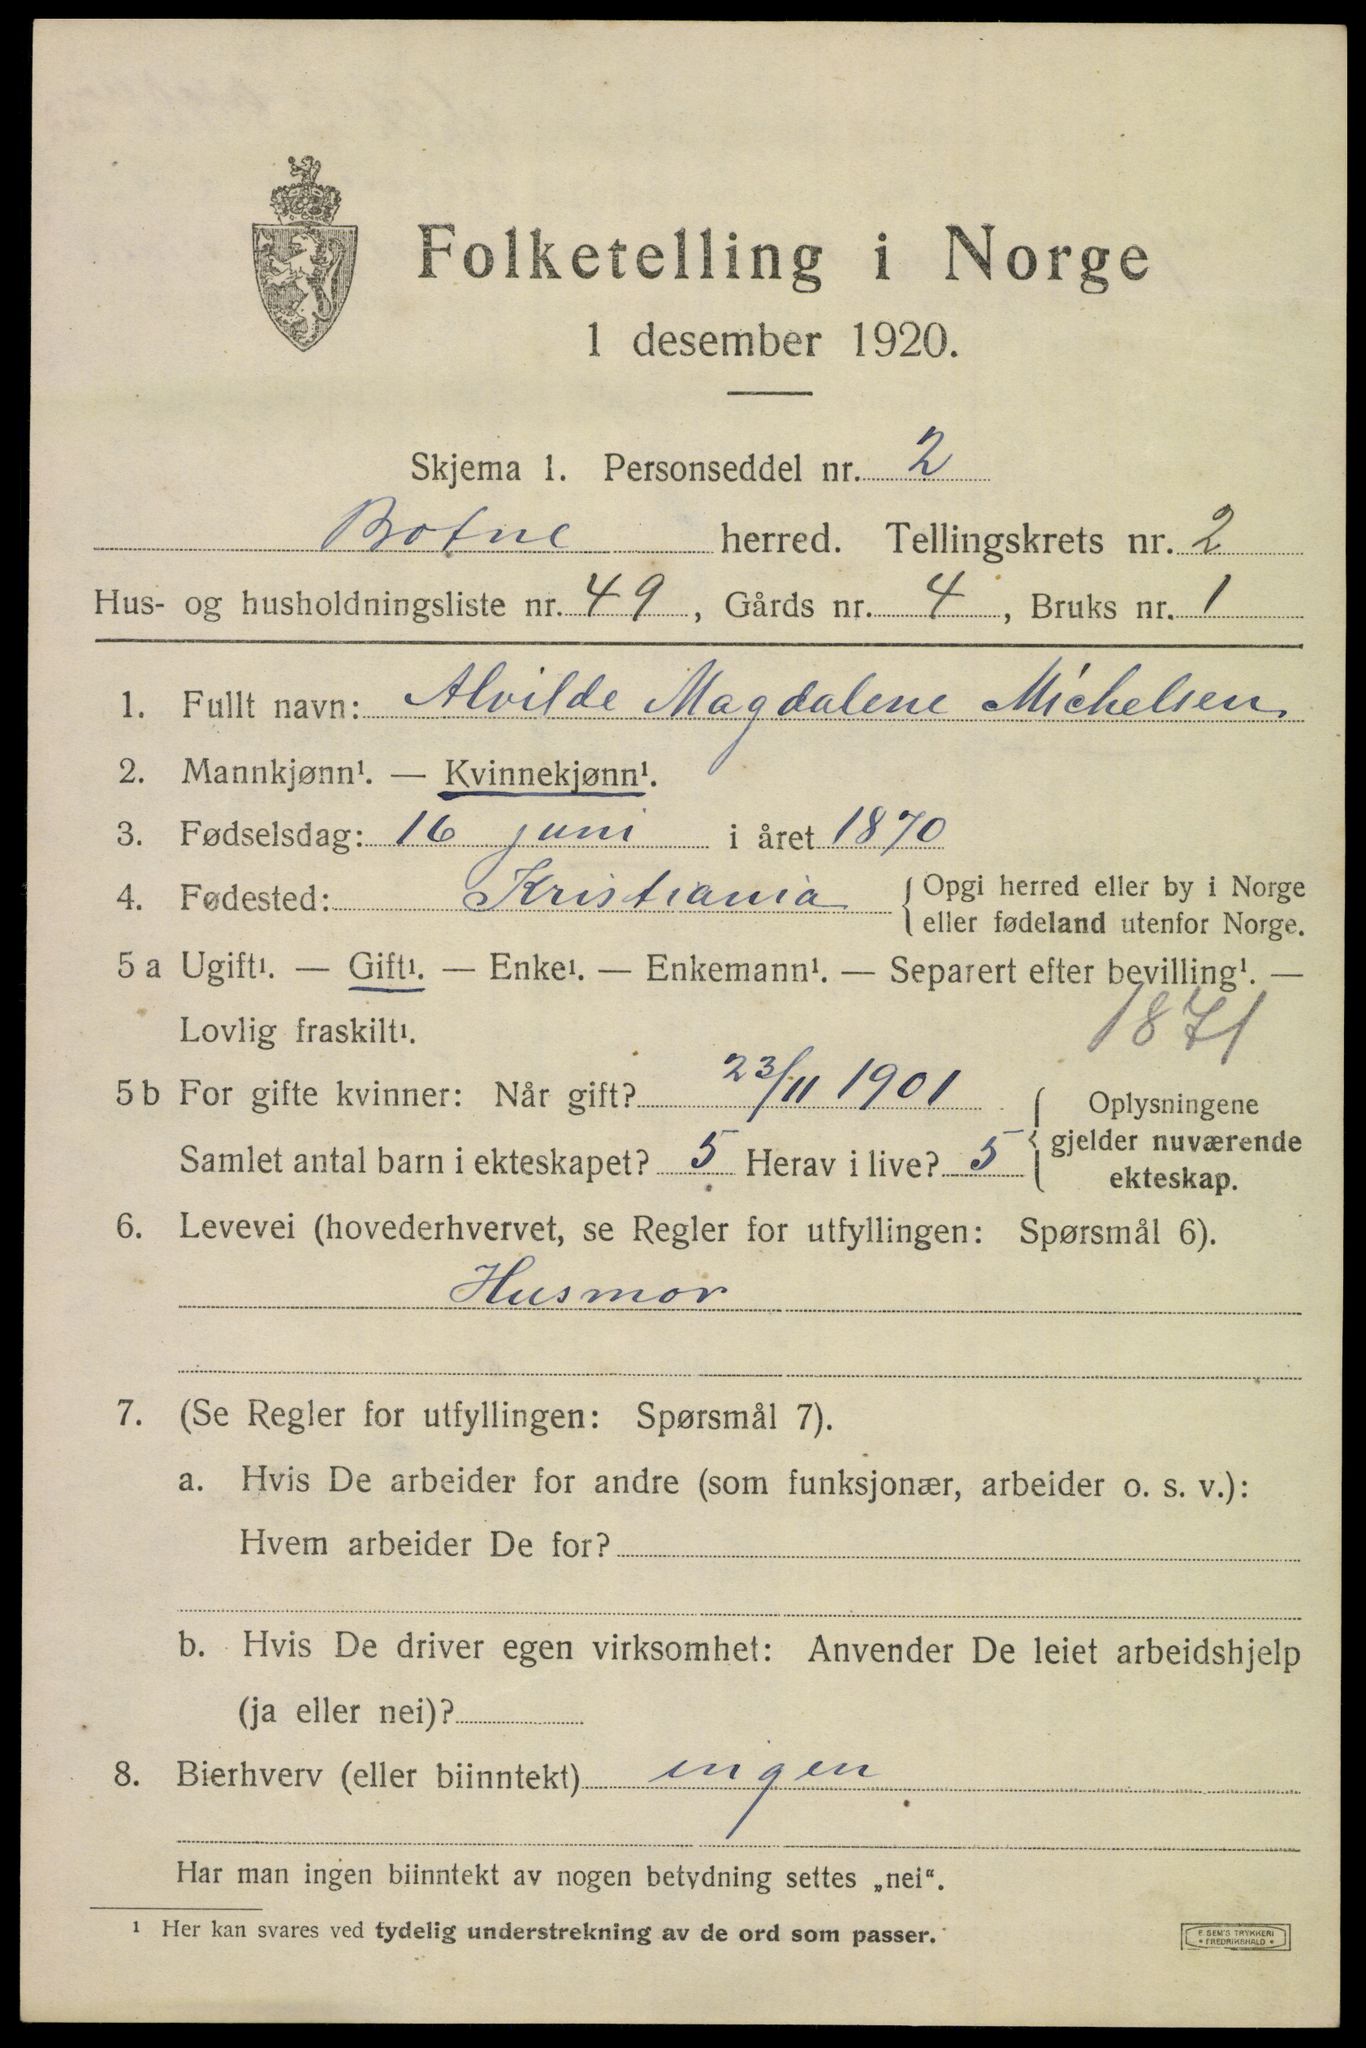 Folketelling i Norge
1 desember 1920.
Skjema 1. Personseddel nr. 2
Botne herred. Tellingskrets nr. 2
Hus- og husholdningsliste nr. 49, Gårds nr. 4, Bruks nr. 1
1. Fullt navn: Alvilde Magdalene Michelsen
2. Mannkjønn¹. — Kvinnekjønn¹.
3. Fødselsdag: 16 juni i året 1870
4. Fødested: Kristiania { Opgi herred eller by i Norge
eller fødeland utenfor Norge.
5 a Ugift¹. — Gift¹. — Enke¹. — Enkemann¹. — Separert efter bevilling¹. —
Lovlig fraskilt¹. 1871
5 b For gifte kvinner: Når gift? 23/11 1901 { Oplysningene
gjelder nuværende
Samlet antal barn i ekteskapet? 5 Herav i live? 5
ekteskap.
6. Levevei (hovederhvervet, se Regler for utfyllingen: Spørsmål 6).
Husmor
7. (Se Regler for utfyllingen: Spørsmål 7).
a. Hvis De arbeider for andre (som funksjonær, arbeider o. s. v.):
Hvem arbeider De for?
b. Hvis De driver egen virksomhet: Anvender De leiet arbeidshjelp
(ja eller nei)?
8. Bierhverv (eller biinntekt) ingen
Har man ingen biinntekt av nogen betydning settes „nei“.
¹ Her kan svares ved tydelig understrekning av de ord som passer.
E SEM'S TRYKKERI
• FREDRIKSHALD •